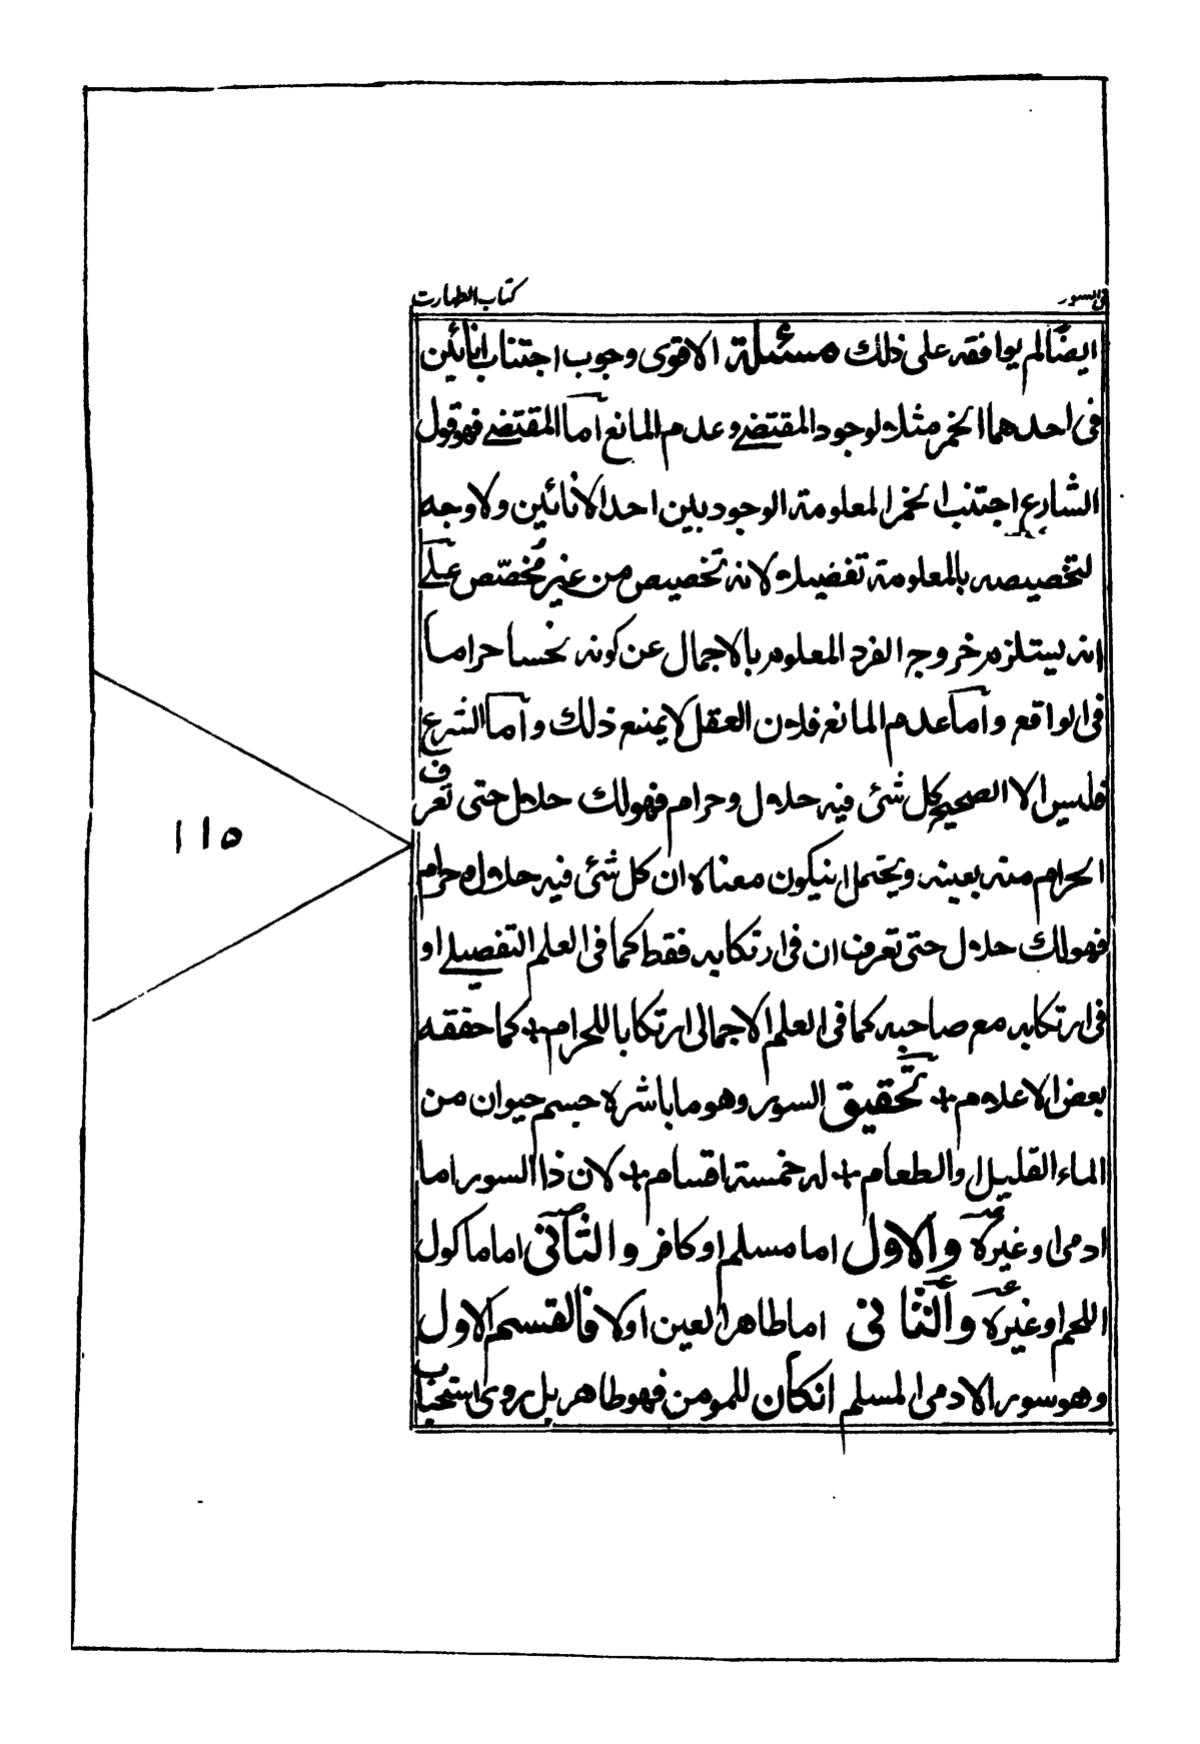 فى السور
كتاب الطهارت
ايضًا لم يوافقه على ذلك مسئلة الاقوى وجوب اجتناب انائين
فى احدهما الخمر مثلا لوجود المقتضى وعدم المانع اما المقتضى فهو قول
الشارع اجتنب الخمر المعلومة الوجود بين احد الانائين ولا وجه
لتخصيصه بالمعلومة تفضيلا لانه تخصيص من غير مُخصّص على
انه يستلزم خروج الفرد المعلوم بالاجمال عن كونه نجسا حراما
فى الواقع واما عدم المانع فلان العقل لا يمنع ذلك واما الشرع
فليس الا الصحيح كل شئ فيه حلال وحرام فهولك حلال حتى تعرف
الحرام منه بعينه ويحتمل انيكون معناه ان كل شئ فيه حلال وحرام
فهولك حلال حتى تعرف ان فى ارتكابه فقط كما فى العلم التفصيلے او
فى ارتكابه مع صاحبه كما فى العلم الاجمالى ارتكابا للحرام + كما حققه
بعض الاعلام + تحقيق السور وهو ما باشره جسم حيوان من
الماء القليل او الطعام + له خمسة اقسام + لان ذا السور اما
ادمى او غيره والاول اما مسلم او كافر والثانى اما ماكول
اللحم او غيره والثانى اما طاهر العين اولا فالقسم الاول
وهو سور الادمى المسلم انكان للمومن فهو طاهر بل روى استحباب
١١٥